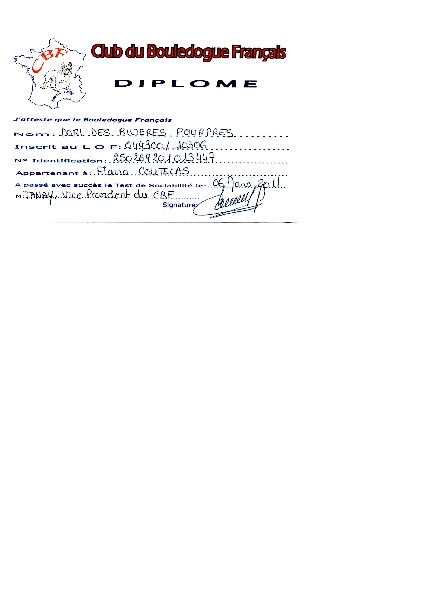 CBF
Club du Bouledogue Français
DIPLOME
J'atteste que le Bouledogue Français
Nom: DARL DES RIVIERES POURPRES
Inscrit au L O F:
N° Identification:
Appartenant à: COUTELAS
A passé avec succès le Test de Sociabilité le: 06 Mars 2011
M. TANAY, Vice Président du CBF
Signature: